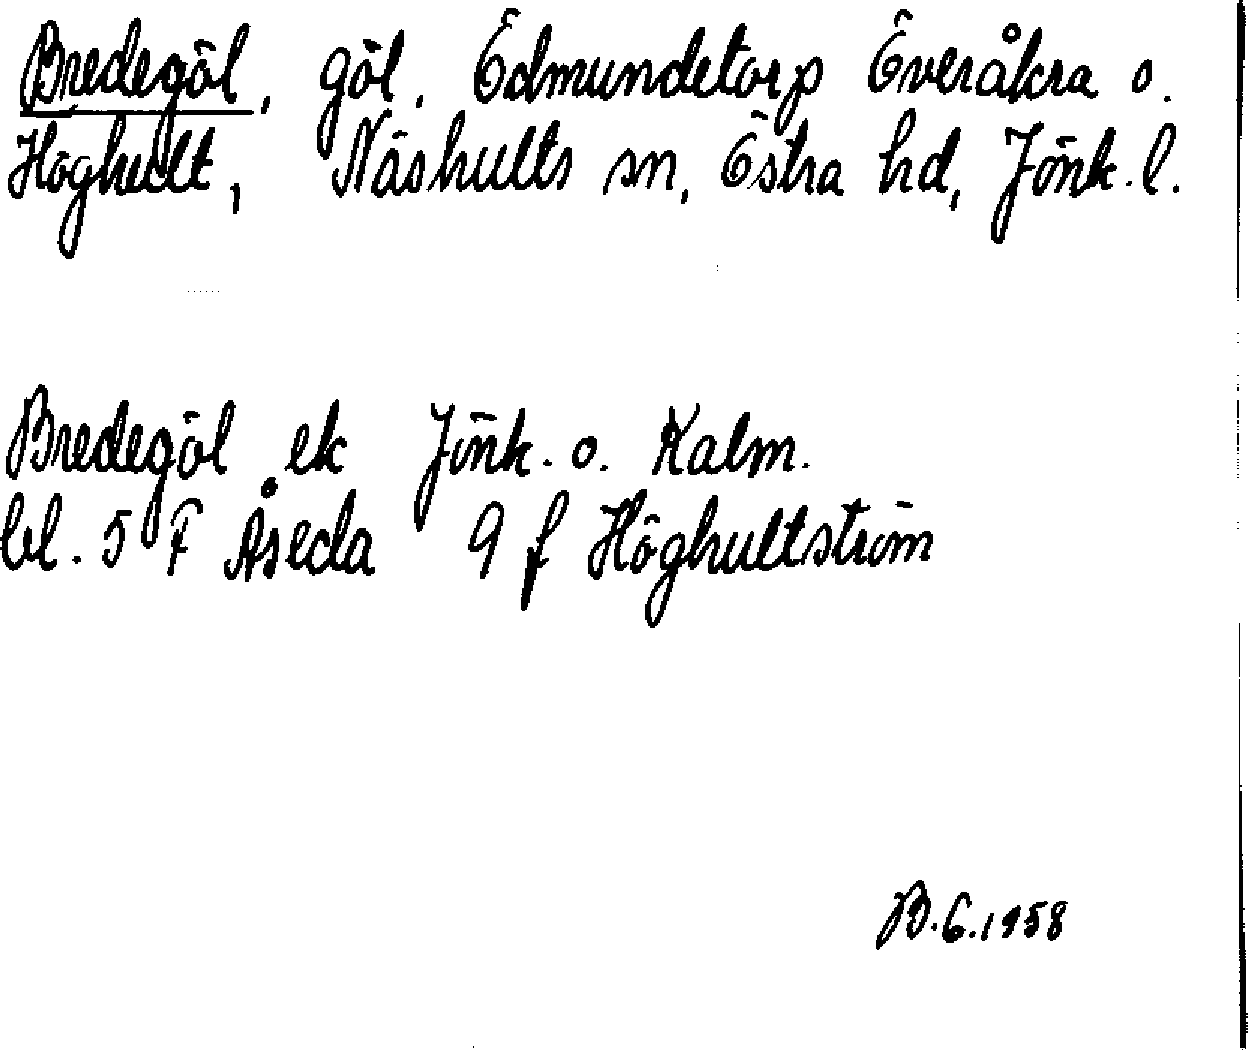 Bredegöl, göl, Ödmundetorp Överåkra o.
Höghult, Näshults sn, Östra hd, Jönk. l.
Bredegöl ek Jönk. o. Kalm.
bl. 5 F Åseda 9 f Höghultström
B. G. 1958